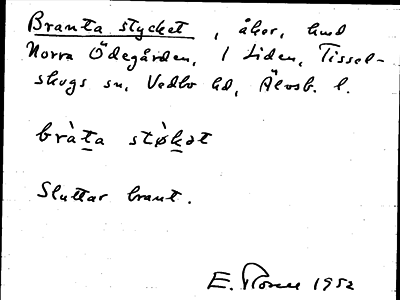 Branta stycket, åker, hmd
Norra Ödegården, 1 Liden, Tissel-
skogs sn, Vedbo hd, Älvsb. l.
bràt̲a støk̲ət
Sluttar brant.
E. 1952